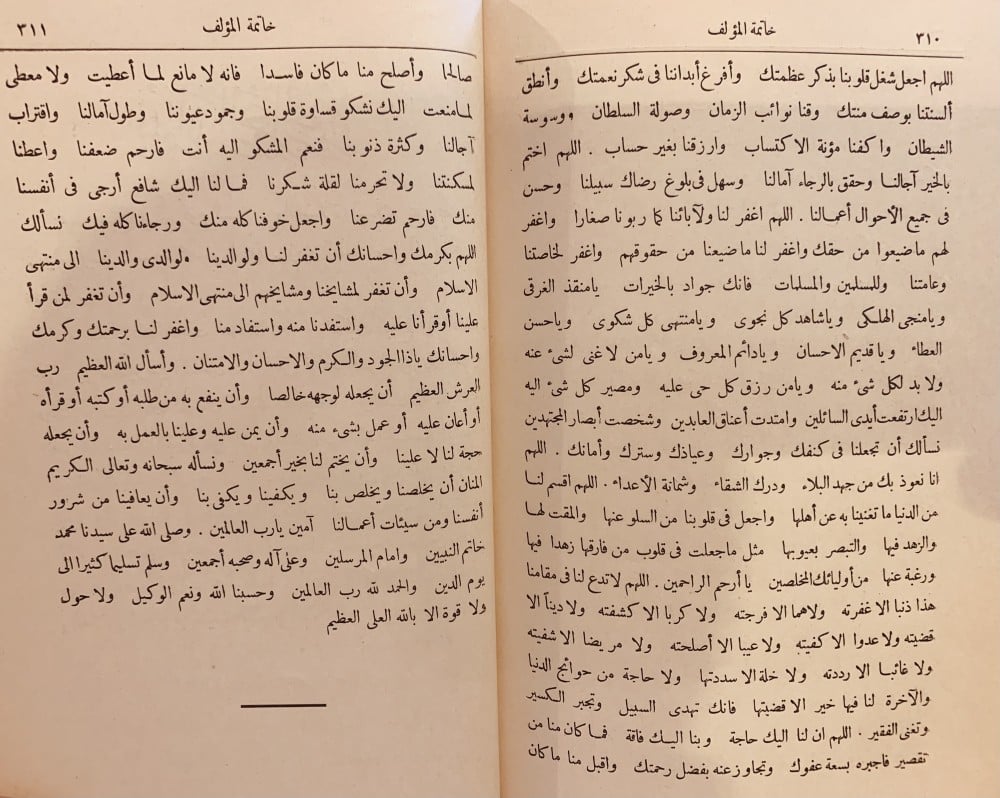 خاتمة المؤلف ٣١٠
اللهم اجعل شغل قلوبنا بذكر عظمتك وأفرغ أبداننا فى شكر نعمتك وأنطق
ألسنتنا بوصف منتك وقنا نوائب الزمان وصولة السلطان ووسوسة
الشيطان واكفنا مؤنة الاكتساب وارزقنا بغير حساب . اللهم اختم
بالخير آجالنا وحقق بالرجاء آمالنا وسهل فى بلوغ رضاك سبيلنا وحسن
فى جميع الأحوال أعمالنا . اللهم اغفر لنا ولآبائنا كما ربونا صغارا واغفر
لهم ماضيعوا من حقك واغفر لنا ماضيعنا من حقوقهم واغفر لخاصتنا
وعامتنا وللمسلمين والمسلمات فانك جواد بالخيرات يامنقذ الغرقى
ويامنجى الهلكى وياشاهد كل نجوى ويامنتهى كل شكوى وياحسن
العطاء وياقديم الاحسان ويادائم المعروف ويامن لاغنى لشىء عنه
ولا بد لكل شىء منه ويامن رزق كل حى عليه ومصير كل شىء اليه
اليك ارتفعت أيدى السائلين وامتدت أعناق العابدين وشخصت أبصار المجتهدين
نسألك أن تجعلنا فى كنفك وجوارك وعياذك وسترك وأمانك . اللهم
انا نعوذ بك من جهد البلاء ودرك الشقاء وشماتة الأعداء . اللهم اقسم لنا
من الدنيا ما تغنينا به عن أهلها واجعل فى قلوبنا من السلو عنها والمقت لها
والزهد فيها والتبصر بعيوبها مثل ماجعلت فى قلوب من فارقها زهدا فيها
ورغبة عنها من أوليائك المخلصين يا أرحم الراحمين . اللهم لا تدع لنا فى مقامنا
هذا ذنبا الا غفرته ولاهما الا فرجته ولا كربا الا كشفته ولا دينا الا
قضيته ولا عدوا الا كفيته ولا عيبا الا أصلحته ولا مريضا الا شفيته
ولا غائبا الا رددته ولا خلة الا سددتها ولا حاجة من حوائج الدنيا
والآخرة لنا فيها خير الا قضيتها فانك تهدى السبيل وتجبر الكسير
وتغنى الفقير . اللهم ان لنا اليك حاجة وبنا اليك فاقة فما كان منا من
تقصير فاجبره بسعة عفوك وتجاوز عنه بفضل رحمتك واقبل منا ماكان
خاتمة المؤلف ٣١١
صالحا وأصلح منا ماكان فاسدا فانه لا مانع لما أعطيت ولا معطى
لما منعت اليك نشكو قساوة قلوبنا وجمود عيوننا وطول آمالنا واقتراب
آجالنا وكثرة ذنوبنا فنعم المشكو اليه أنت فارحم ضعفنا واعطنا
لمسكنتنا ولا تحرمنا لقلة شكرنا فما لنا اليك شافع أرجى فى أنفسنا
منك فارحم تضرعنا واجعل خوفنا كله منك ورجاءنا كله فيك نسألك
اللهم بكرمك واحسانك أن تغفر لنا ولوالدينا ولوالدى والدينا الى منتهى
الاسلام وأن تغفر لمشايخنا ومشايخهم الى منتهى الاسلام وأن تغفر لمن قرأ
علينا أو قرأنا عليه واستفدنا منه واستفاد منا واغفر لنا برحمتك وكرمك
واحسانك ياذا الجود والكرم والاحسان والامتنان . وأسأل الله العظيم رب
العرش العظيم أن يجعله لوجهه خالصا وأن ينفع به من طلبه أو كتبه أو قرأه
أو أعان عليه أو عمل بشىء منه وأن يمن عليه وعلينا بالعمل به وأن يجعله
حجة لنا لا علينا وأن يختم لنا بخير أجمعين ونسأله سبحانه وتعالى الكريم
المنان أن يخلصنا ويخلص بنا ويكفينا ويكفى بنا وأن يعافينا من شرور
أنفسنا ومن سيئات أعمالنا آمين يارب العالمين . وصلى الله على سيدنا محمد
خاتم النبيين وامام المرسلين وعلى آله وصحبه أجمعين وسلم تسليما كثيرا الى
يوم الدين والحمد لله رب العالمين وحسبنا الله ونعم الوكيل ولا حول
ولا قوة الا بالله العلى العظيم